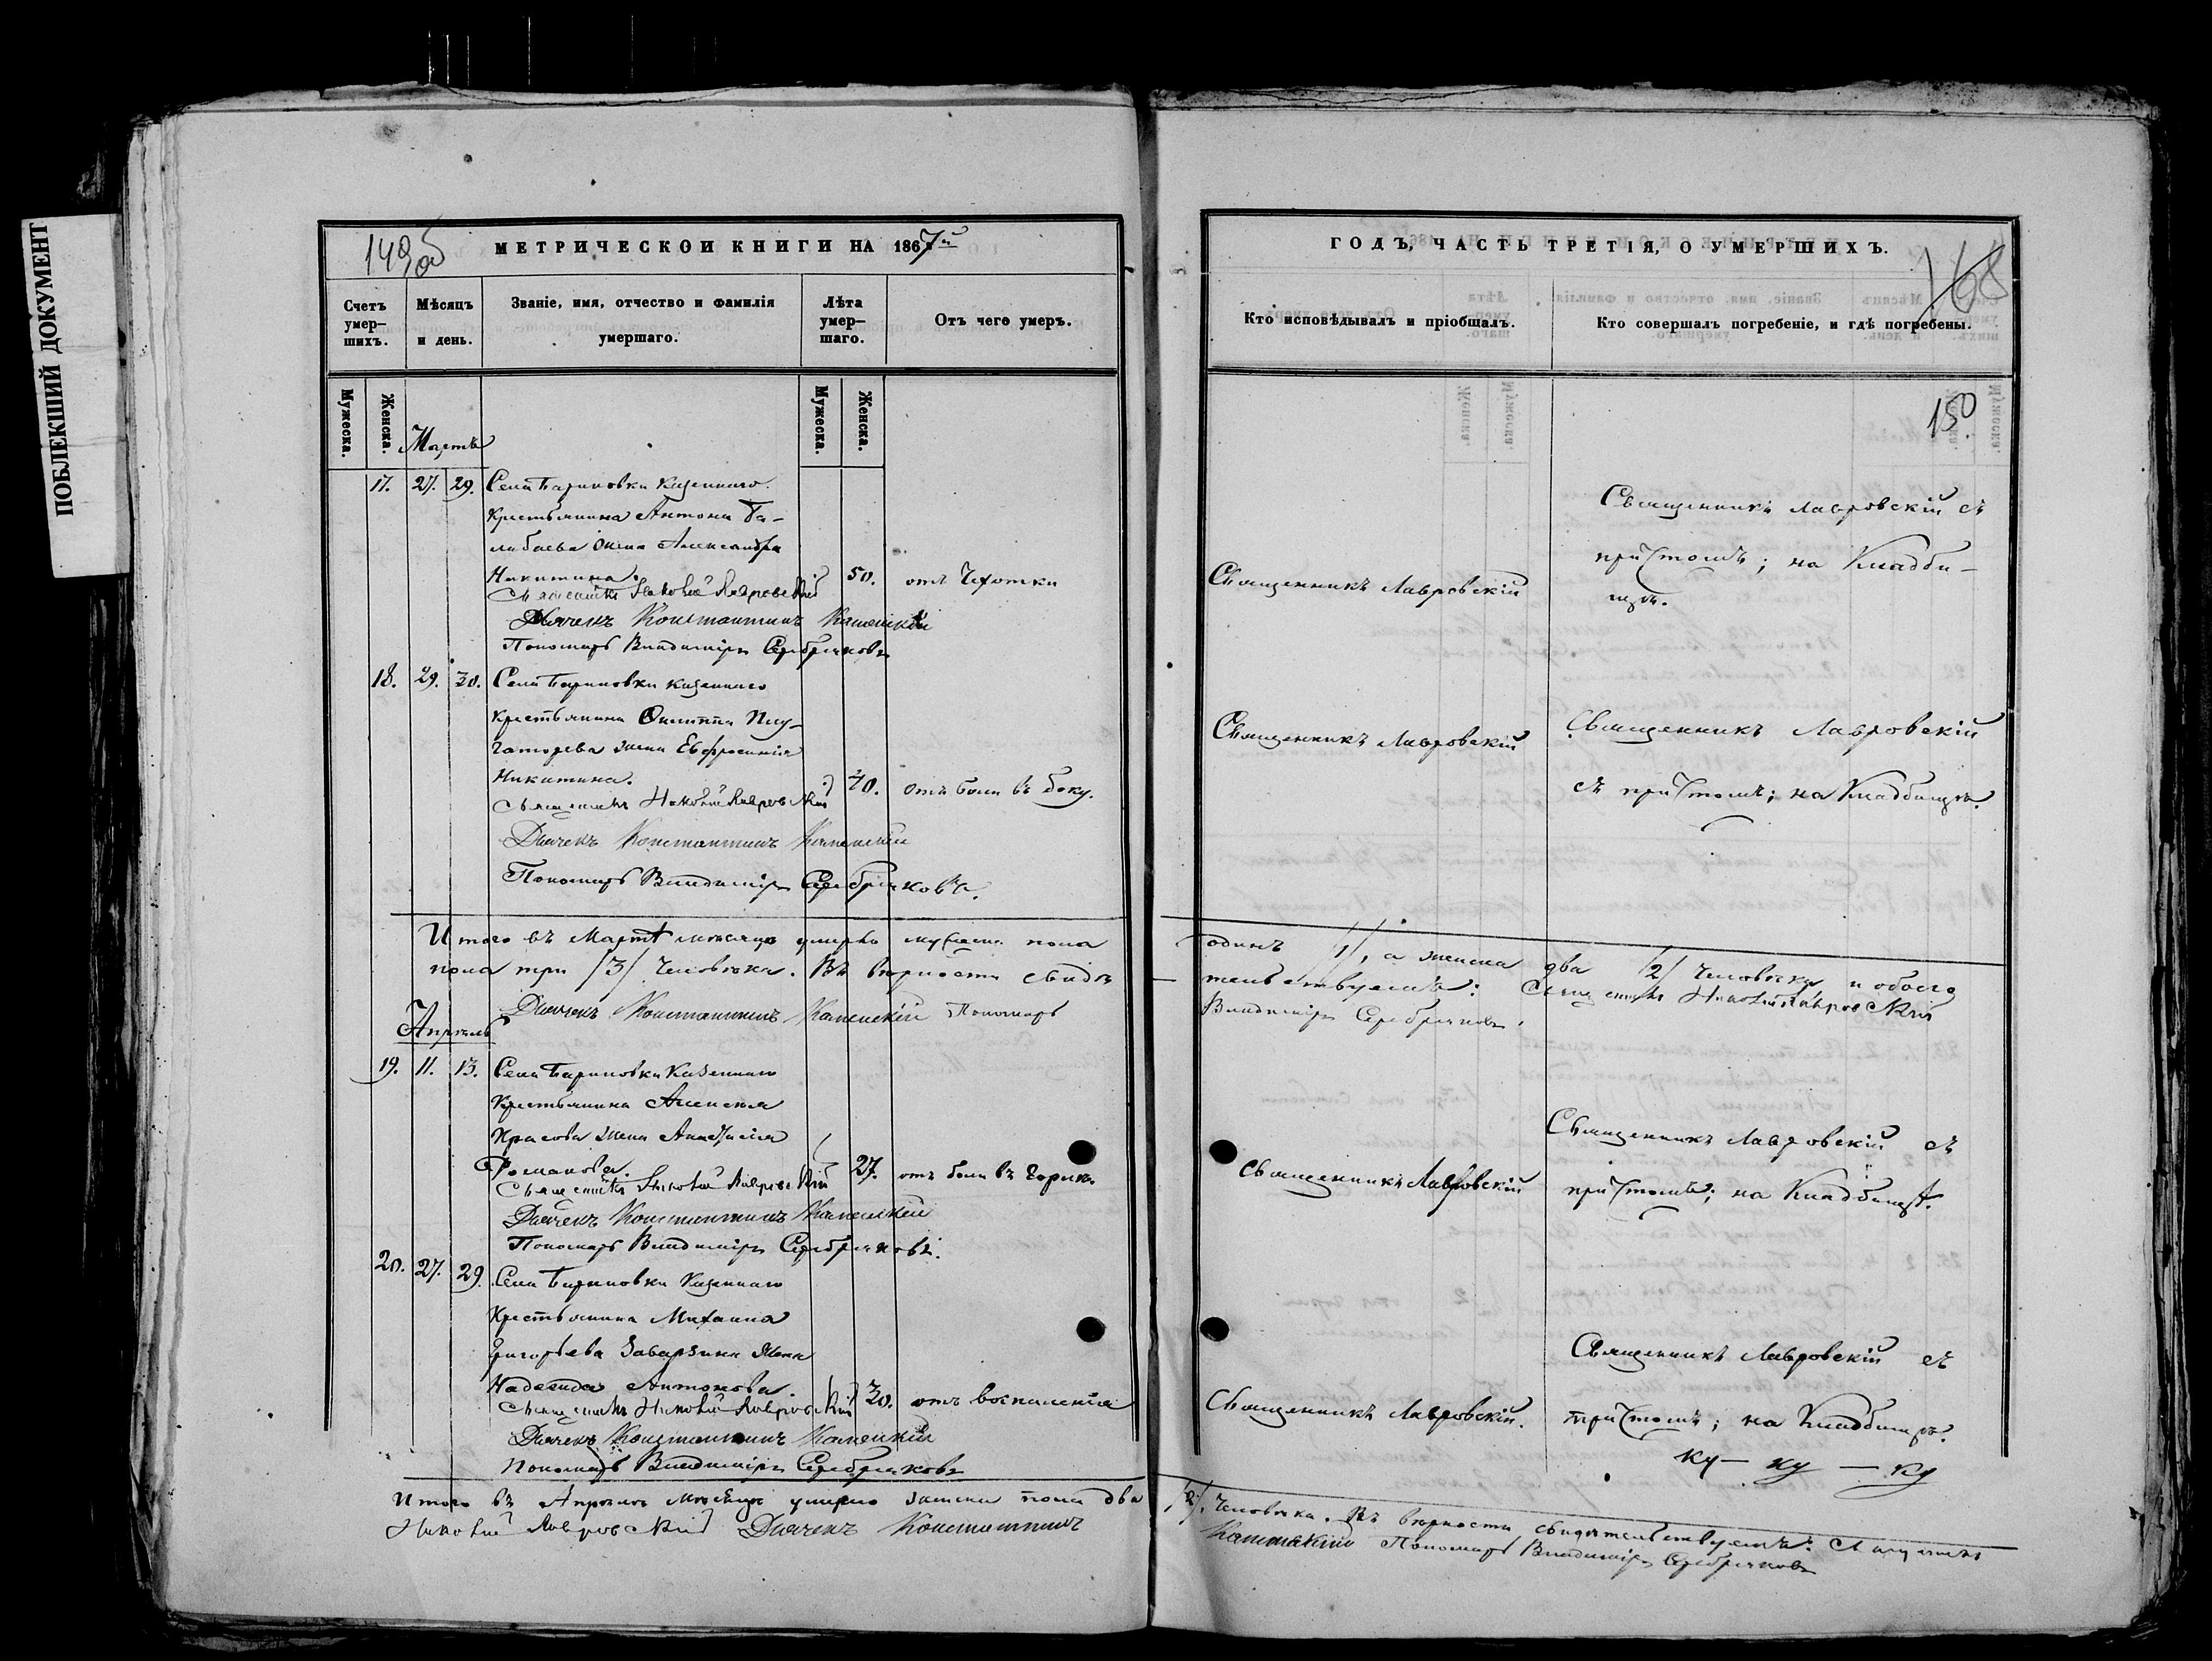 ПОБЛЕКШИЙ ДОКУМЕНТ
149об
МЕТРИЧЕСКОЙ КНИГИ НА 1867й
Счетъ умер-шихъ.
Мѣсяцъ и день.
Званіе, имя, отчество и фамилія умершаго.
Лѣта умер-шаго.
Отъ чего умеръ.
Мужеска.
Женска.
Мужеска.
Женска.
Мартъ
17. 27. 29. Села Бариновки казеннаго
крестьянина Антона Ба-
лабаева жена Александра
Никитина. 50. отъ чахотки
Священникъ Николай Лавровскій
Дьячекъ Константинъ Каменскій
Пономарь Владиміръ Серебряковъ
18. 29. 30. Села Бариновки казеннаго
крестьянина Филиппа
жена Евфросинія
Никитина. 40. отъ боли въ боку.
Священникъ Николай Лавровскій
Дьячекъ Константинъ Каменскій
Пономарь Владиміръ Серебряковъ.
Итого въ Мартѣ месяце умерло мужеска пола
пола три /3/ человѣка. Въ вѣрности свидѣ
Дьячекъ Константинъ Каменскій Пономарь
Апрѣль
19. 11. 13. Села Бариновки казеннаго
крестьянина Алексея
Красова жена Анастасія
Романова. 27. отъ боли въ горлѣ
Священникъ Николай Лавровскій
Дьячекъ Константинъ Каменскій
Пономарь Владиміръ Серебряковъ.
20. 27. 29. Села Бариновки казеннаго
крестьянина Михаила
Григорьева Заварзина жена
Надежда Антонова. 30. отъ воспаленія
Священникъ Николай Лавровскій
Дьячекъ Константинъ Каменскій
Пономарь Владиміръ Серебряковъ
Итого въ Апрѣлѣ месяце умерло женска пола два
Николай Лавровскій Дьячекъ Константинъ
ГОДЪ, ЧАСТЬ ТРЕТІЯ, О УМЕРШИХЪ.
168
Кто исповѣдывалъ и пріобщалъ.
Кто совершалъ погребеніе, и гдѣ погребены.
150
Священникъ Лавровскій
Священникъ Лавровскій съ
причтомъ; на Кладби-
щѣ.
Священникъ Лавровскій
Священникъ Лавровскій
съ причтомъ; на Кладбищѣ.
одинъ /1/, а женска два /2/ человѣка, и обоего
тельствуемъ: Священникъ Николай Лавровскій
Владиміръ Серебряковъ.
Священникъ Лавровскій
Священникъ Лавровскій съ
причтомъ; на Кладбищѣ.
Священникъ Лавровскій.
Священникъ Лавровскій съ
причтомъ; на Кладбищѣ.
ку — ку — ку
/2/, человѣка. Въ вѣрности свидѣтельствуемъ: Священникъ
Каменскій Пономарь Владиміръ Серебряковъ